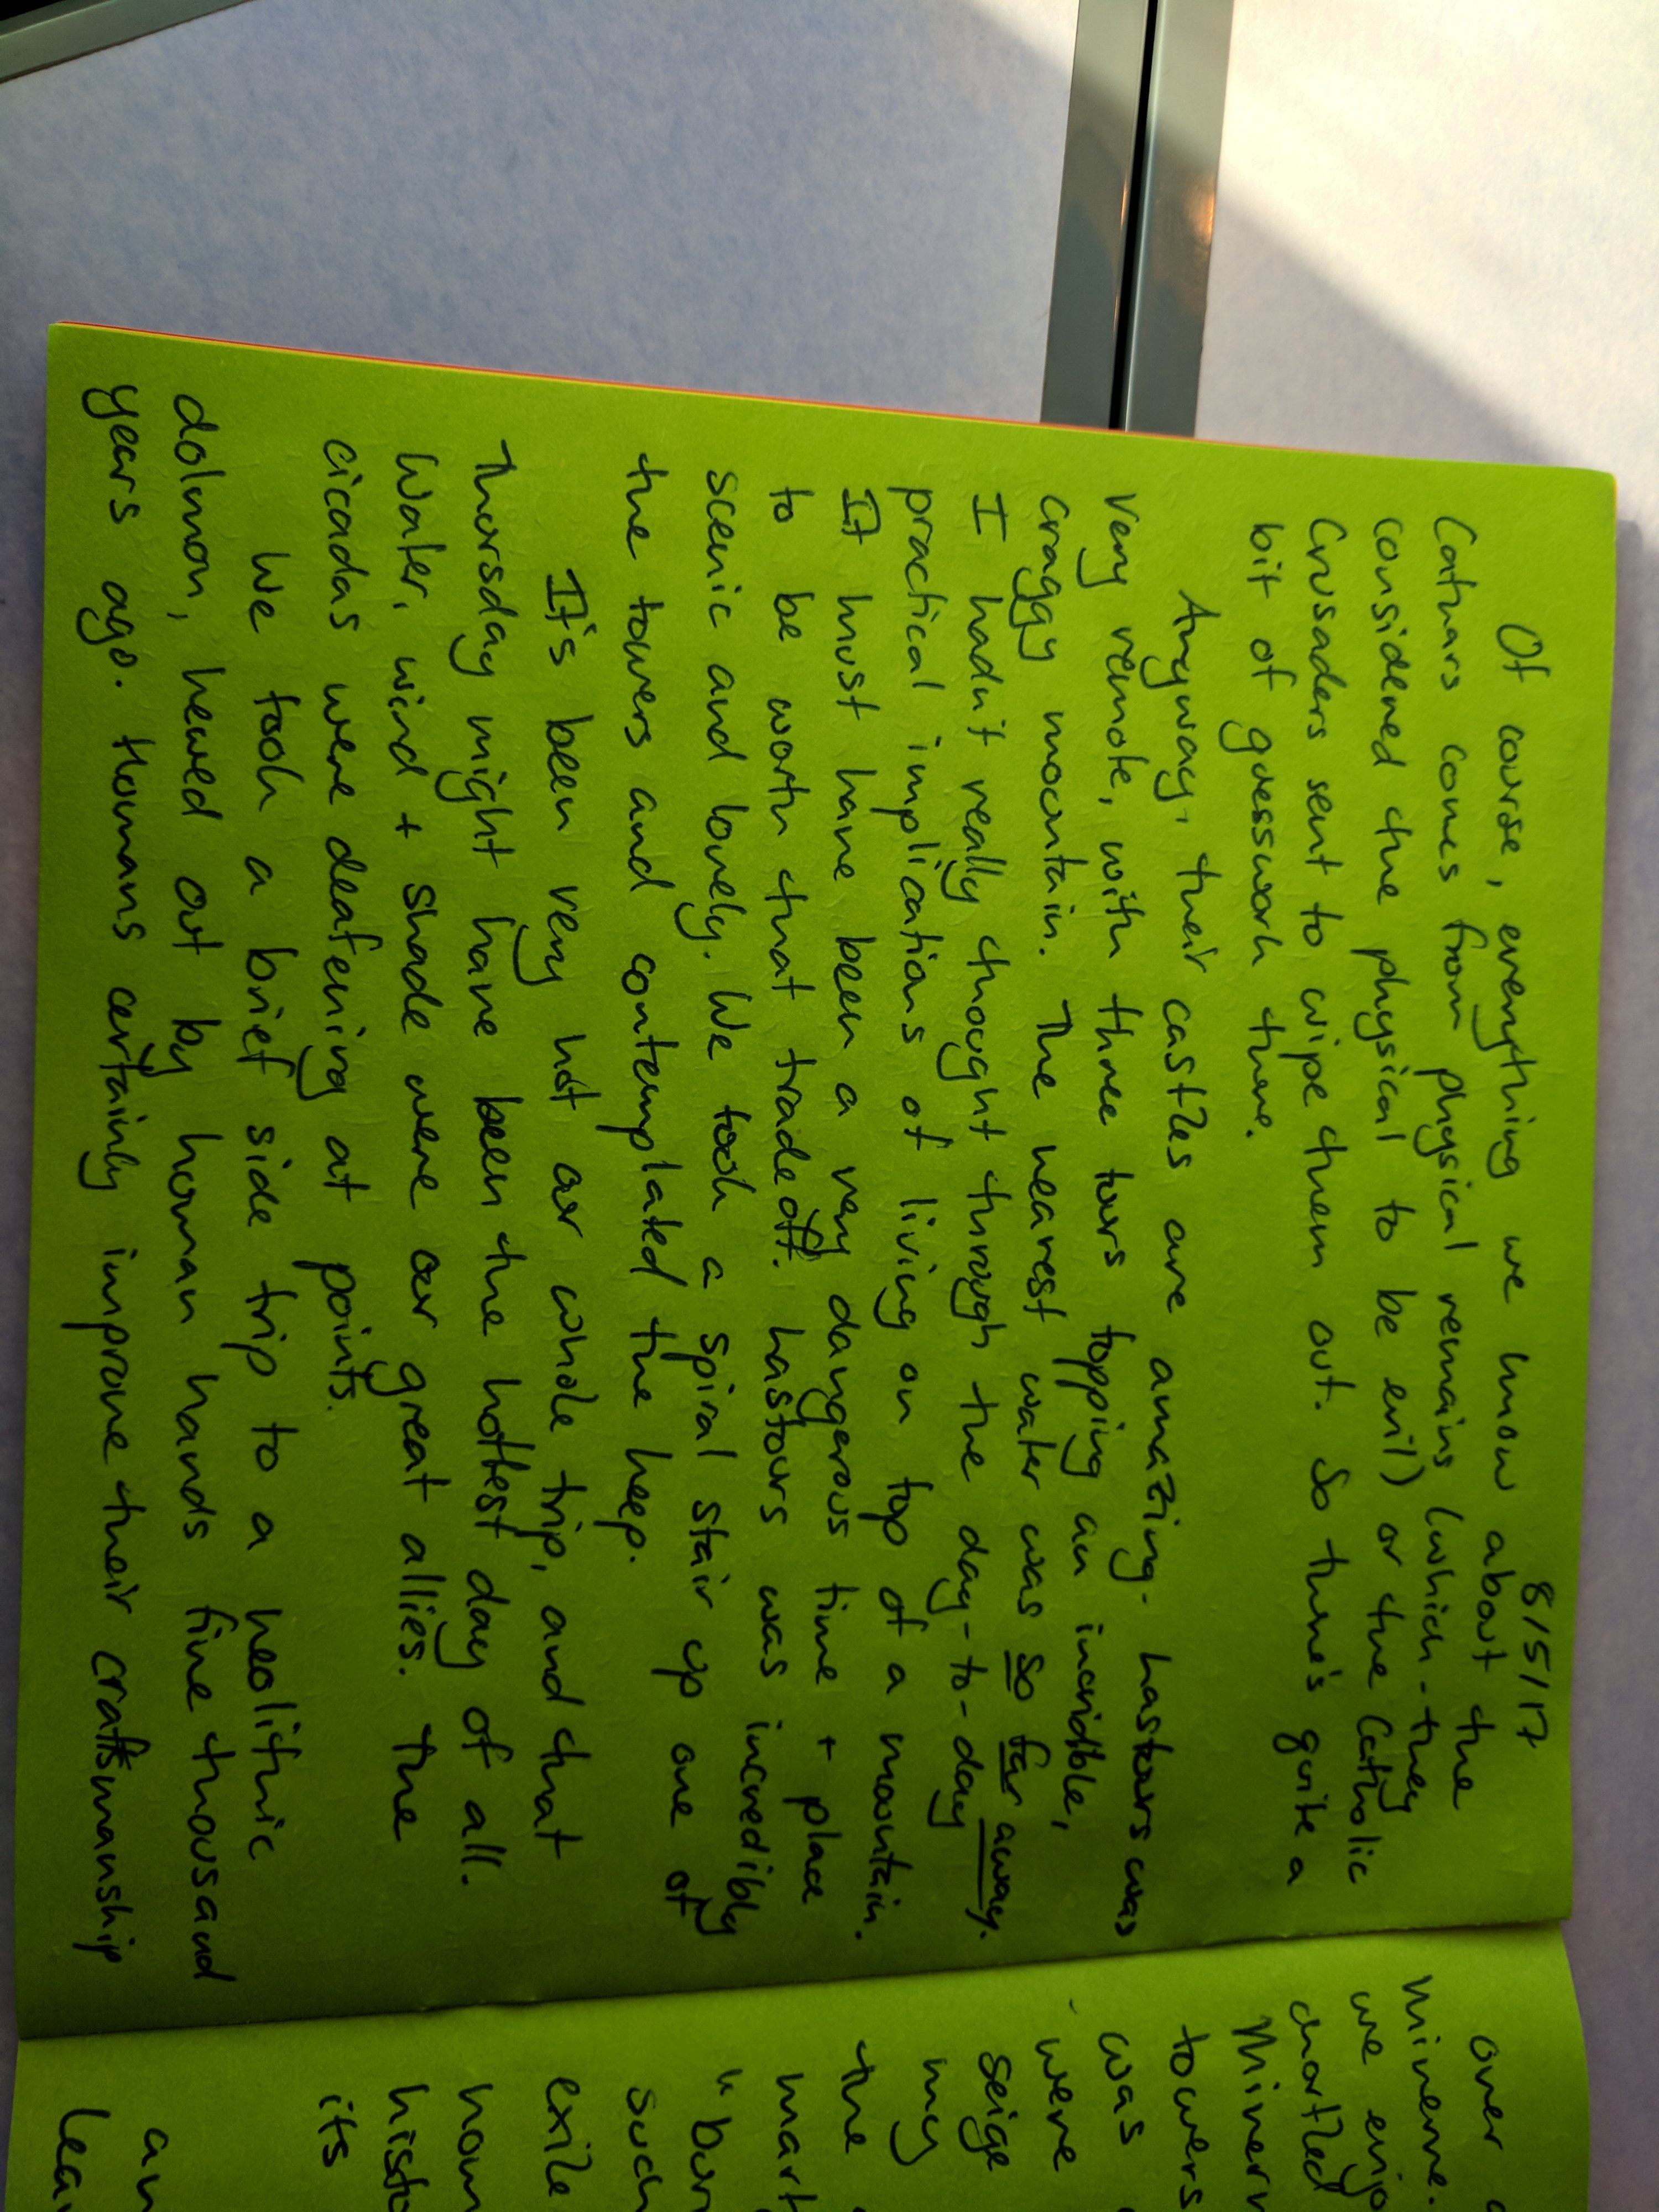 8/5/17
Of course, everything we know about the
Cathars comes from physical remains (which - they
considered the physical to be evil) or the Catholic
Crusaders sent to wipe them out. So there's quite a
bit of guesswork there.
Anyway, their castles are amazing. Lastours was
very remote, with three tours topping an incredible,
craggy mountain. The nearest water was so far away.
I hadn't really thought through the day-to-day
practical implications of living on top of a mountain.
It must have been a very dangerous time + place
to be worth that tradeoff. Lastours was incredibly
scenic and lovely. We took a spiral stair up one of
the towers and contemplated the keep.
It's been very hot our whole trip, and that
Thursday might have been the hottest day of all.
Water, wind + shade were our great allies. The
cicadas were deafening at points.
We took a brief side trip to a neolithic
dolmon, hewed out by human hands five thousand
years ago. Humans certainly improve their craftsmanship
over
Minerve.
we enjo
chortled
Minerv
towers
was
were
seige
my
the
mart
"bon
such
exile
hom
histo
its
an
lea